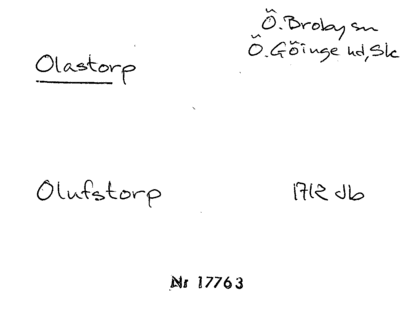 Ö. Broby sn
Ö. Göinge hd, Sk
Olastorp
Olufstorp 1712 db
Nr 17763